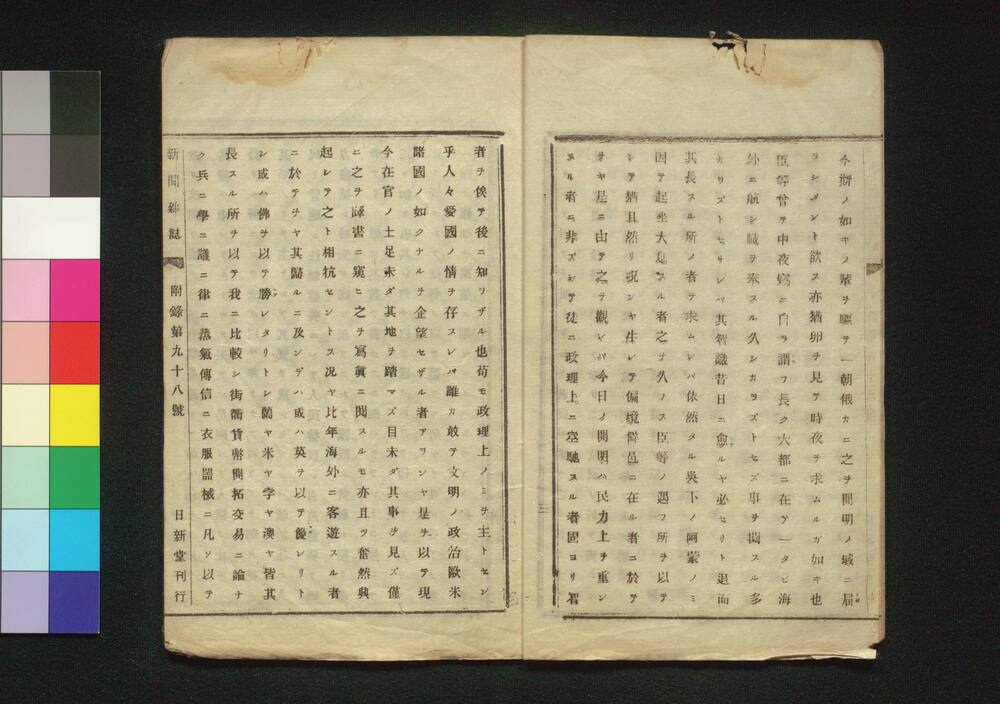 今斯ノ如キノ輩ヲ驅テ一朝俄カニ之ヲ開明ノ域ニ届
ラシメント欲ス亦猶卵ヲ見テ時夜ヲ求ムルガ如キ也
臣等曾テ中夜竊ニ自ラ謂フ長ク大都ニ在テ一タビ海
外ニ航シ職ヲ奉スル久シカラズトセズ事ヲ閲スル多
カリズトセザレバ其智識昔日ニ愈ルヤ必セリト退而
其長スル所ノ者ヲ求ムレバ依然タル呉下ノ阿蒙ノミ
因テ起坐大息スル者之ヲ久ノス臣等ノ遇フ所ヲ以テ
シテ猶且然リ况ンヤ生レテ偏境僻邑ニ在ル者ニ於テ
ヲヤ是ニ由テ之ヲ觀レバ今日ノ開明ハ民力上ヲ重ン
スル者ニ非ズシテ徒ニ政理上ニ空馳スル者固ヨリ智
者ヲ俟テ後ニ知リザル也苟モ政理上ノミヲ主トセン
乎人々愛國ノ情ヲ存スレバ誰カ敢テ文明ノ政治歐米
諸國ノ如クナルヲ企望セザル者アランヤ是ヲ以テ現
今在官ノ士足未ダ其地ヲ踏マズ目未ダ其事ヲ見ズ僅
ニ之ヲ譯書ニ窺ヒ之ヲ寫眞ニ閲スルモ亦且ツ奮然興
起シテ之ト相抗セントス况ヤ比年海外ニ客遊スル者
ニ於テヲヤ其歸ルニ及ンデハ或ハ英ヲ以テ優レリト
シ或ハ佛ヲ以テ勝レタリトシ蘭ヤ米ヤ孛ヤ澳ヤ皆其
長スル所ヲ以テ我ニ比較シ街衢貨幣開拓交易ニ論ナ
ク兵ニ學ニ議ニ律ニ蒸氣傳信ニ衣服噐械ニ凡ソ以テ
新聞雑誌 附録第九十八號 日新堂刊行